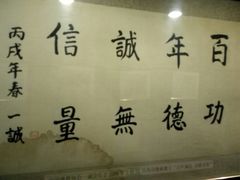 百功
年德
誠無
信量
丙戌年春一誠